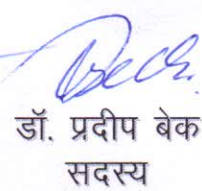 डॉ. प्रदीप बेक
सदस्य